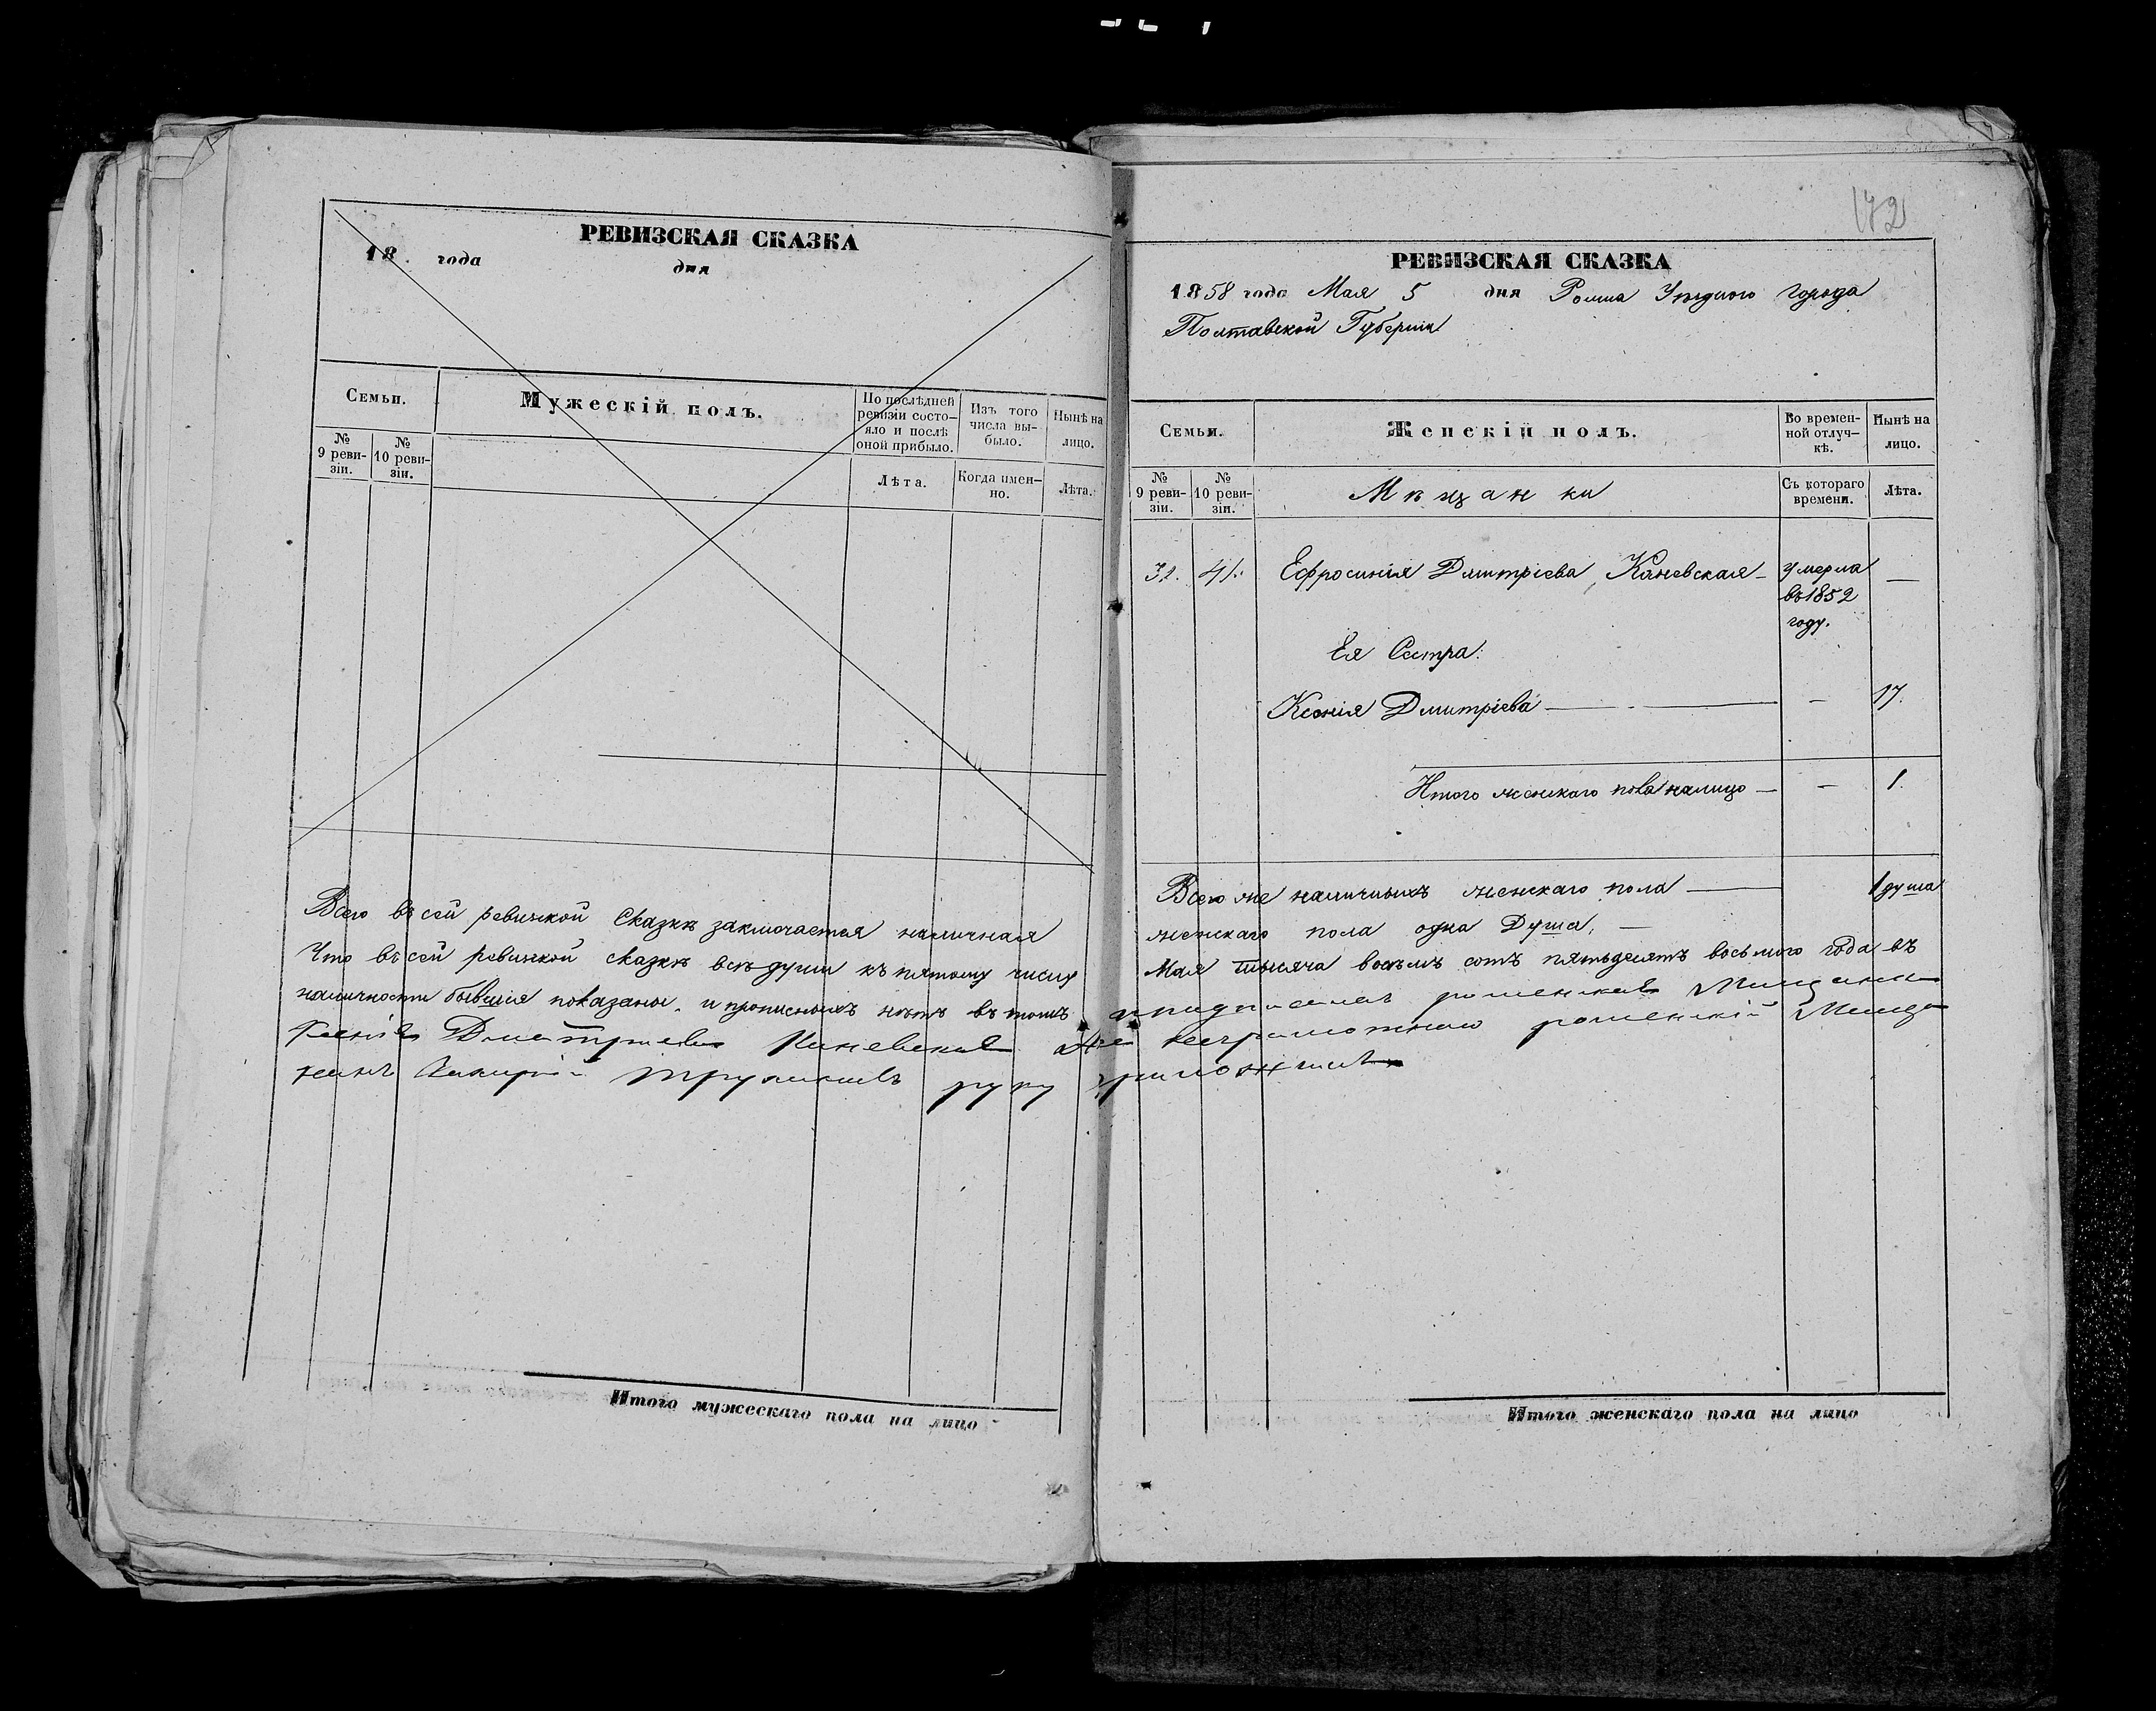 РЕВИЗСКАЯ СКАЗКА
18 . года дня
Семьи.
Мужескій полъ.
По послѣдней ревизіи состо-яло и послѣ оной прибыло.
Изъ того числа вы-было.
Нынѣ на лицо.
№ 9 реви-зіи.
№ 10 реви-зіи.
Лѣта.
Когда имен-но.
Лѣта.
Всего въ сей ревизкой Сказкѣ заключается наличная
Что въ сей ревизкой сказкѣ всѣ души къ пятому числу
наличности бывшія показаны, и прописныхъ нѣтъ въ томъ
Ксенія Дмитриева Каневская а
нинъ руку
Итого мужескаго пола на лицо
172
РЕВИЗСКАЯ СКАЗКА
1858 года Мая 5 дня Ромна Уѣзднаго Города
Полтавской Губерніи
Семьи.
Женскій полъ.
Во времен-ной отлуч-кѣ.
Нынѣ на лицо.
№ 9 реви-зіи.
№ 10 реви-зіи.
Мѣщанки
Съ котораго времени.
Лѣта.
31. 41. Ефросинія Дмитріева Каневская — умерла —
въ 1852
году.
Ея Сестра.
Ксенія Дмитріева — — 17.
Итого женскаго пола налицо — — 1.
Всего же наличныхъ женскаго пола — 1 душа
женскаго пола одна Душа, —
Мая тысяча восемъ сотъ пятьдесятъ восьмого года въ
подписалась роменская Мещанка
неграмотною роменскій Меща
приложилъ
Итого женскаго пола на лицо